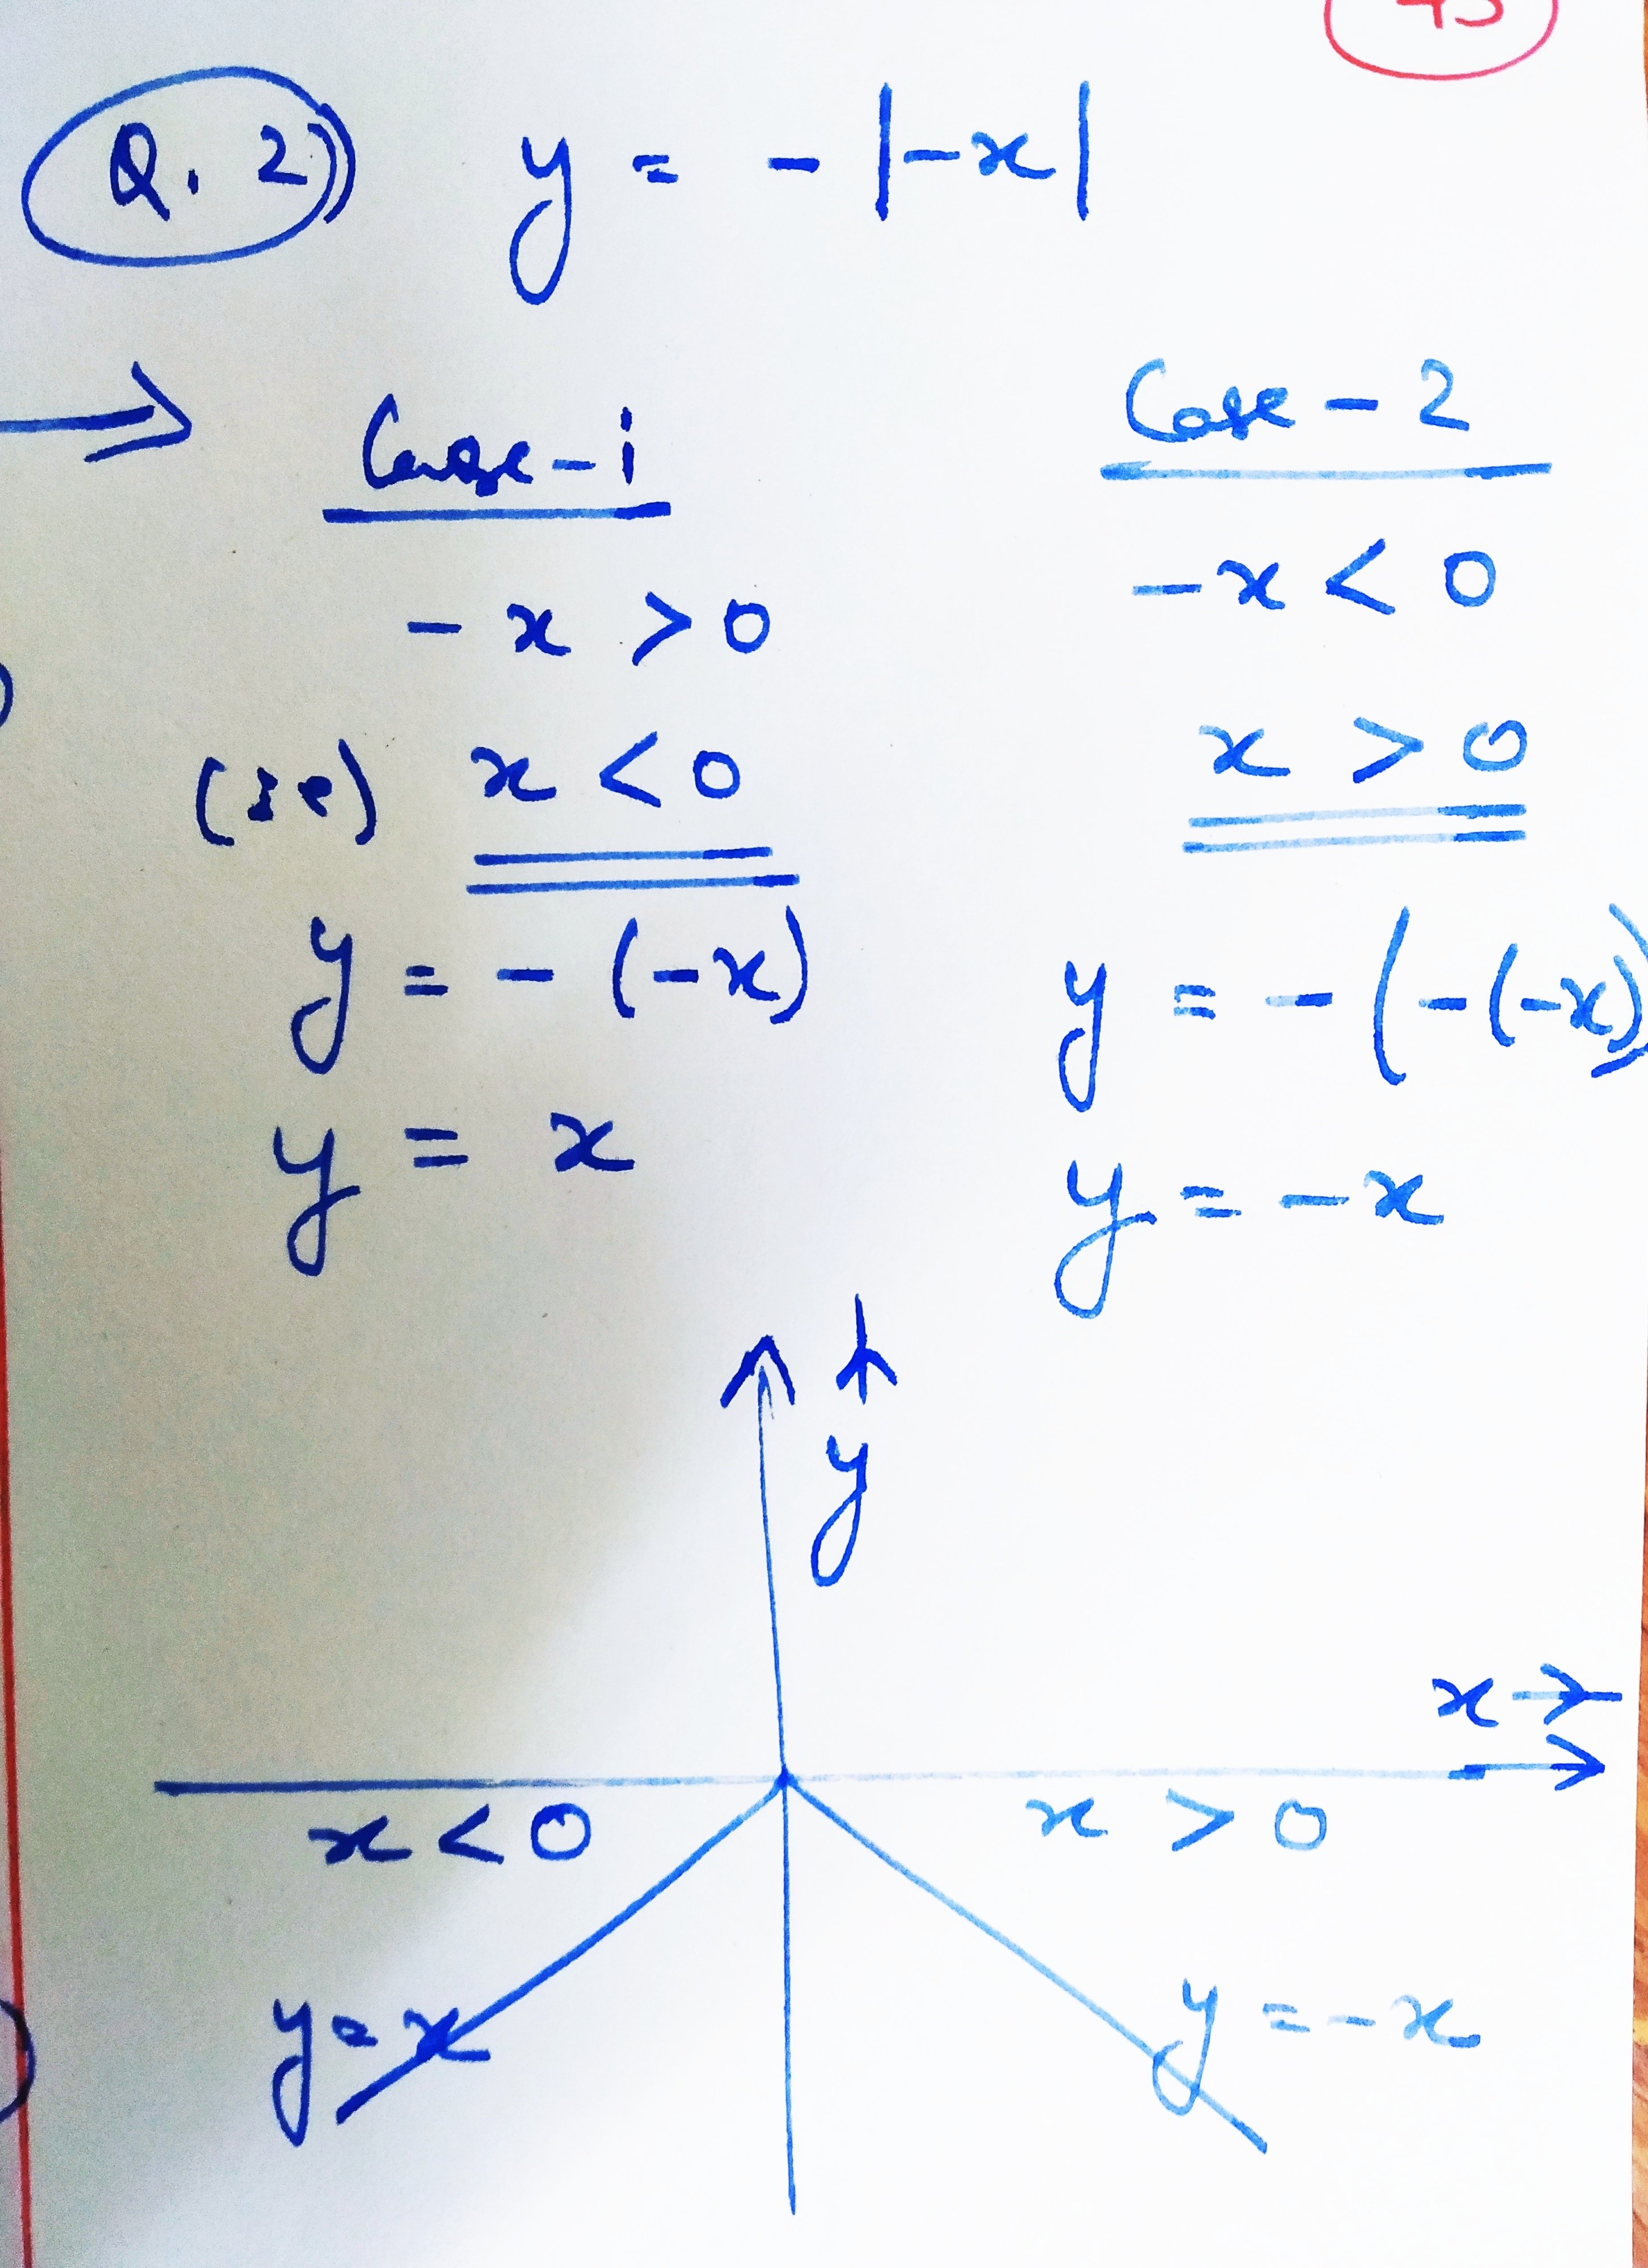 Q. 2) y = - |-x|
Case - 1
- x > 0
(ie) x < 0
y = - (-x)
y = x
Case - 2
-x < 0
x > 0
y = - (-(-x))
y = -x
y
x →
x < 0
x > 0
y = x
y = -x